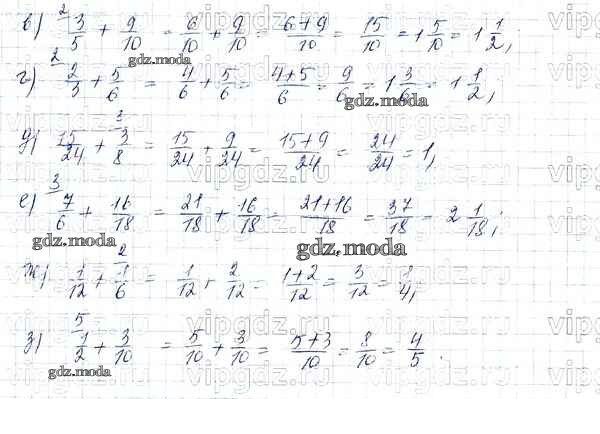 в) ² 3/5 + 9/10 = 6/10 + 9/10 = 6+9/10 = 15/10 = 1 5/10 = 1 1/2;
г) ² 2/3 + 5/6 = 4/6 + 5/6 = 4+5/6 = 9/6 = 1 3/6 = 1 1/2;
д) 15/24 + ³ 3/8 = 15/24 + 9/24 = 15+9/24 = 24/24 = 1;
е) ³ 7/6 + 16/18 = 21/18 + 16/18 = 21+16/18 = 37/18 = 2 1/18;
ж) 1/12 + ² 1/6 = 1/12 + 2/12 = 1+2/12 = 3/12 = 1/4;
з) ⁵ 1/2 + 3/10 = 5/10 + 3/10 = 5+3/10 = 8/10 = 4/5.
gdz.moda
gdz.moda
gdz.moda
gdz.moda
gdz.moda
vipgdz.ru